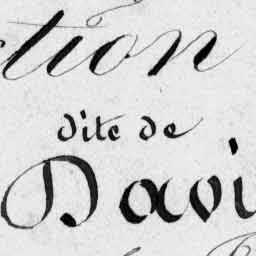 tion
dite de
Davi